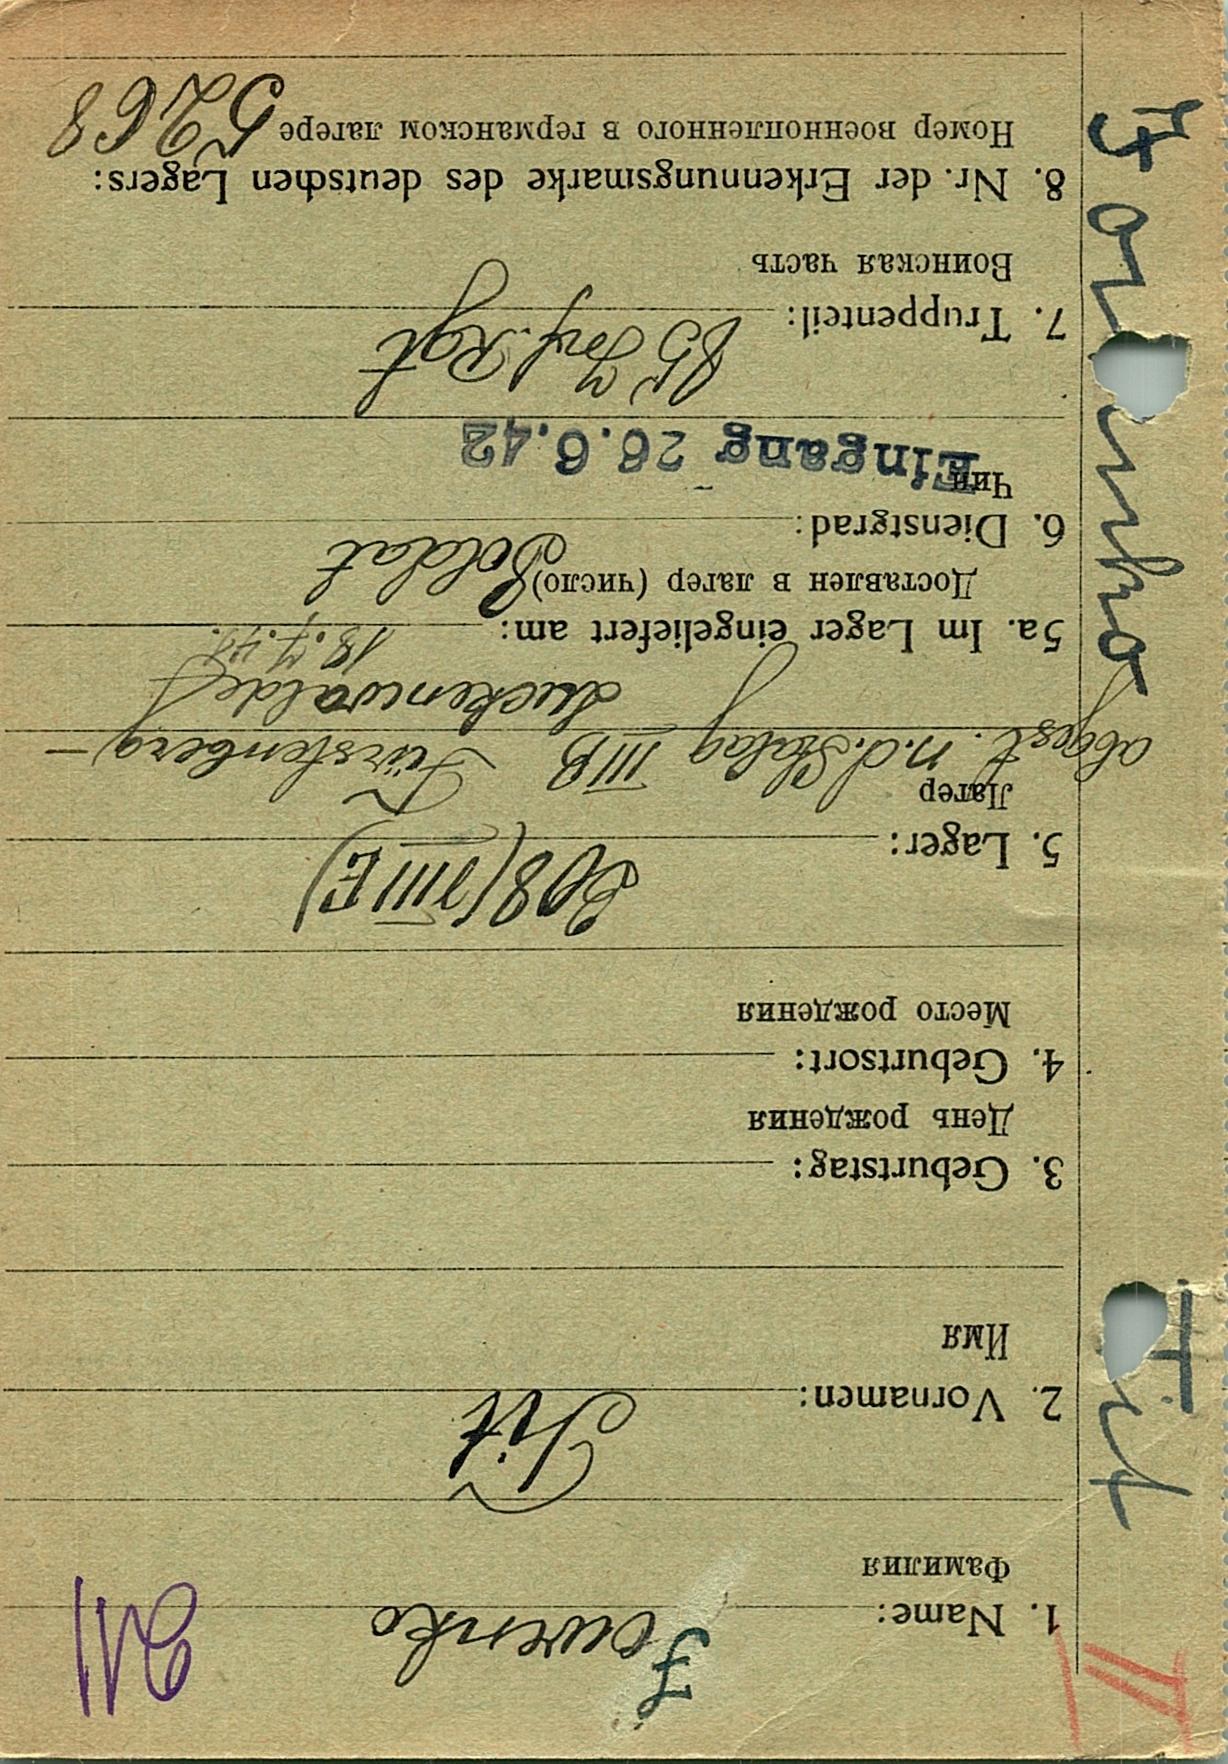 II
1. Name:
Фамилия
2. Vornamen: Tit
Имя
3. Geburtstag:
День рождения
4. Geburtsort:
Место рождения
5. Lager: 308 (VIII E)
Лагер
Stalag III B Fürstenberg –
Luckenwalde
5a. Im Lager eingeliefert am: 18.7.41.
Доставлен в лагер (число)
6. Dienstgrad: Soldat
Чин
Eingang 26.6.42
7. Truppenteil: 85 Inf. Rgt
Воинская часть
8. Nr. der Erkennungsmarke des deutschen Lagers:
Номер военнопленного в германском лагере 5268
Tit